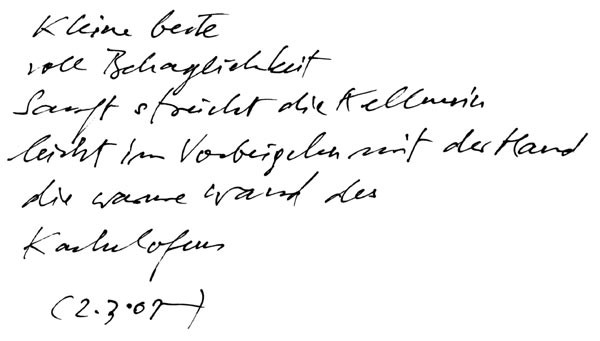 Kleine Geste
voll Behaglichkeit
Sanft streicht die Kellnerin
leicht im Vorbeigehn mit der Hand
die warme Wand des
Kachelofens
(2.3.07)